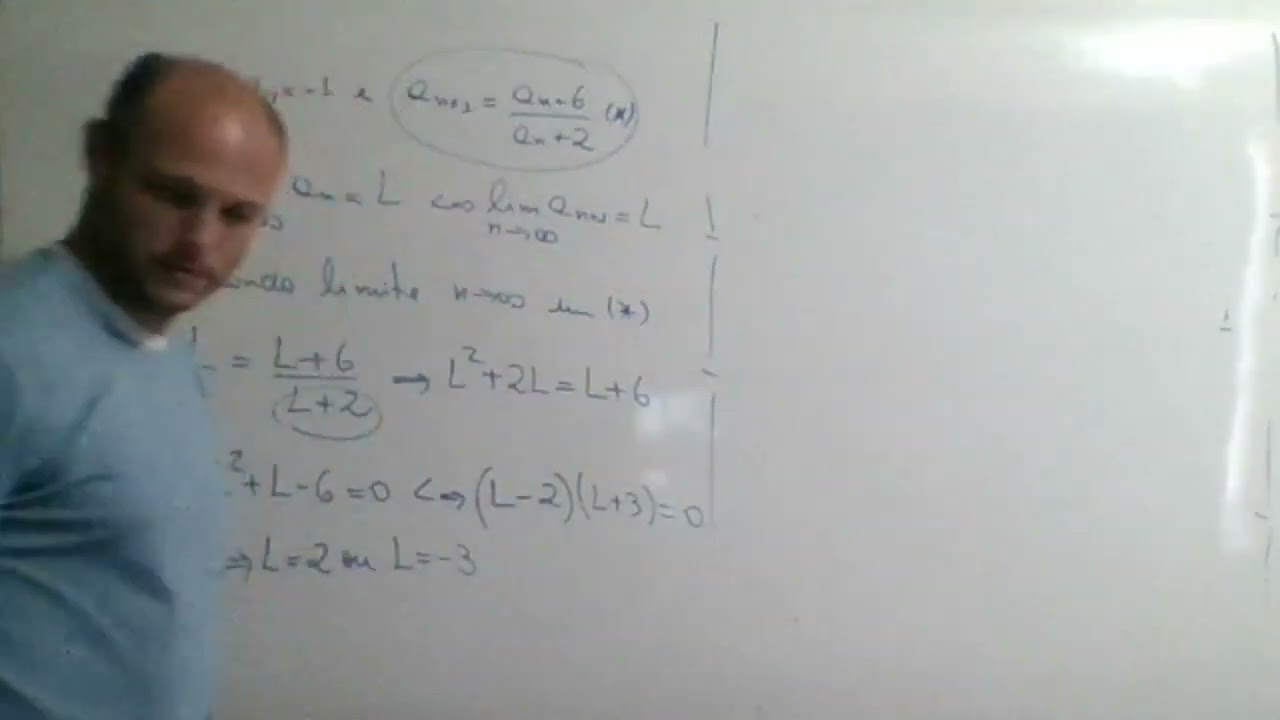 aₙ₊₁ = (aₙ+6)/(aₙ+2) (*)
aₙ = L <=> lim aₙ₊₁ = L n→∞
limite n→∞ em (*)
= (L+6)/(L+2) → L²+2L=L+6
²+L-6=0 <=> (L-2)(L+3)=0
⇒ L=2 ou L=-3